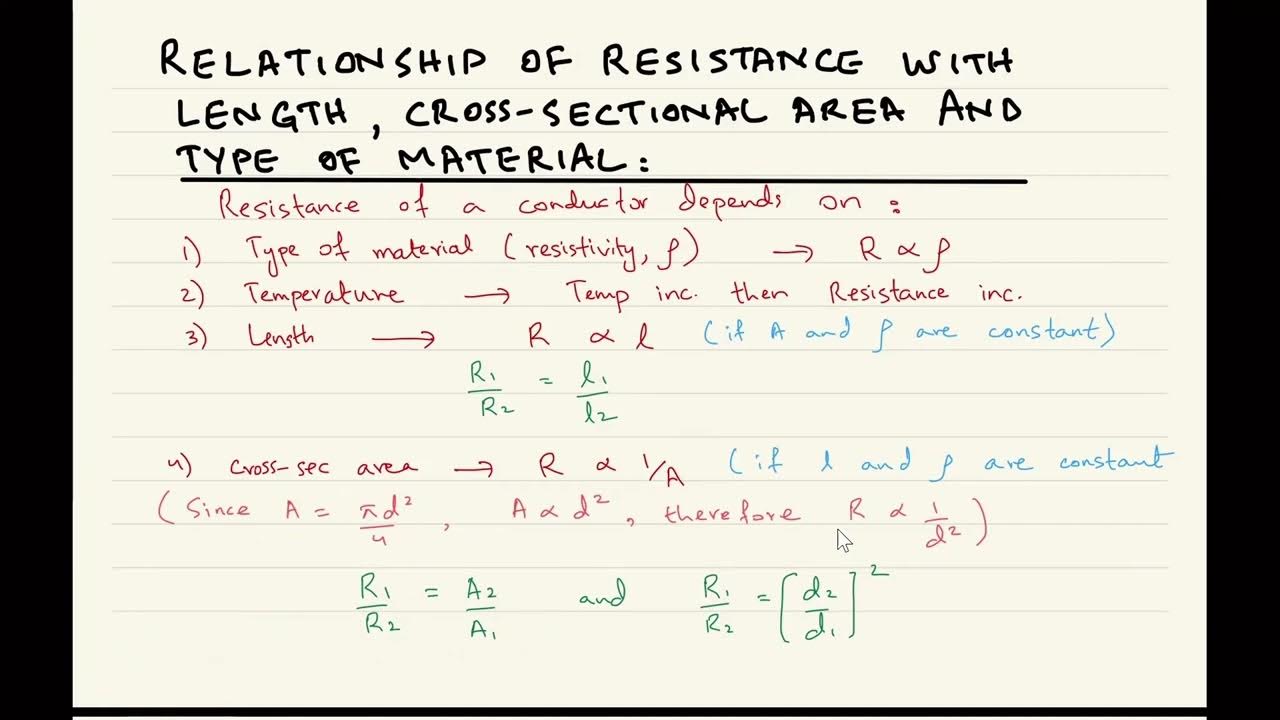 RELATIONSHIP OF RESISTANCE WITH
LENGTH, CROSS-SECTIONAL AREA AND
TYPE OF MATERIAL:
Resistance of a conductor depends on:
1) Type of material (resistivity, ρ) → R ∝ ρ
2) Temperature → Temp inc. then Resistance inc.
3) Length → R ∝ l (if A and ρ are constant)
R₁/R₂ = l₁/l₂
4) cross-sec area → R ∝ 1/A (if l and ρ are constant
(Since A = πd²/4, A ∝ d², therefore R ∝ 1/d²)
R₁/R₂ = A₂/A₁ and R₁/R₂ = [d₂/d₁]²